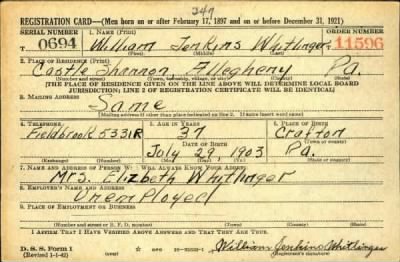 247
REGISTRATION CARD—(Men born on or after February 17, 1897 and on or before December 31, 1921)
SERIAL NUMBER 1. NAME (Print) ORDER NUMBER
0694 William Jenkins Whitlinger 11596
(First) (Middle) (Last)
2. PLACE OF RESIDENCE (Print)
Castle Shannon Allegheny Pa.
(Number and street) (Town, township, village, or city) (County) (State)
[THE PLACE OF RESIDENCE GIVEN ON THE LINE ABOVE WILL DETERMINE LOCAL BOARD
JURISDICTION; LINE 2 OF REGISTRATION CERTIFICATE WILL BE IDENTICAL]
3. MAILING ADDRESS
Same
[Mailing address if other than place indicated on line 2. If same insert word same]
4. TELEPHONE 5. AGE IN YEARS 6. PLACE OF BIRTH
Fieldbrook 5331R 37 Crafton
DATE OF BIRTH (Town or county)
July 29, 1903 Pa.
(Exchange) (Number) (Mo.) (Day) (Yr.) (State or country)
7. NAME AND ADDRESS OF PERSON WHO WILL ALWAYS KNOW YOUR ADDRESS
Mrs. Elizbeth Whitlinger
8. EMPLOYER'S NAME AND ADDRESS
Unemployed
9. PLACE OF EMPLOYMENT OR BUSINESS
(Number and street or R. F. D. number) (Town) (County) (State)
I AFFIRM THAT I HAVE VERIFIED ABOVE ANSWERS AND THAT THEY ARE TRUE.
D. S. S. Form 1
(Revised 1-1-42) (over)
William Jenkins Whitlinger
(Registrant's signature)